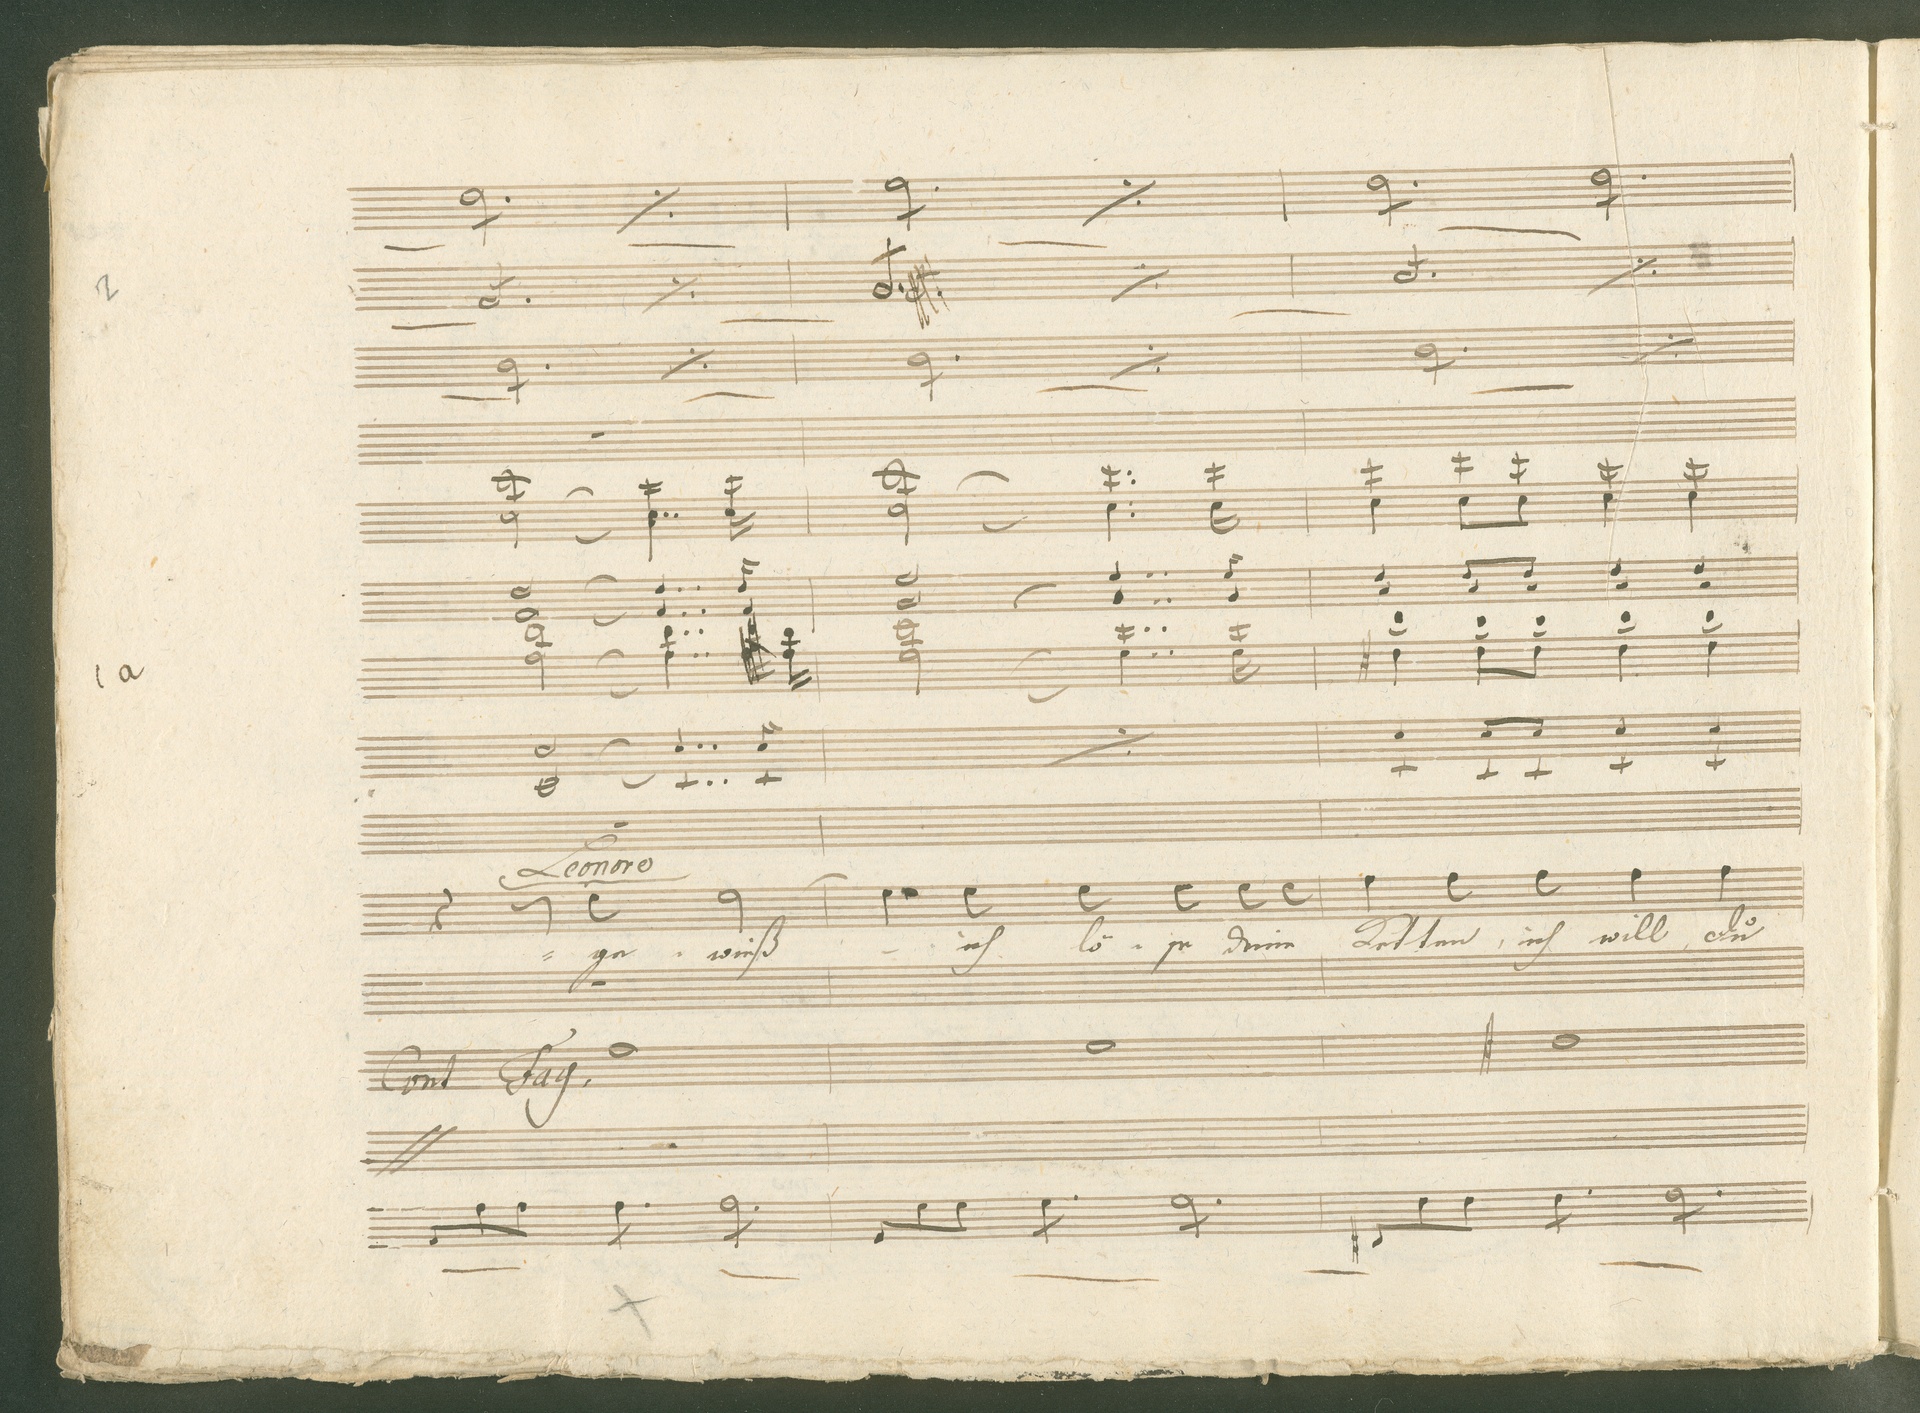 2
1 a
Leonore
= ge - wiß - ich lö - se deine Ketten, ich will, du
Cont Fag.